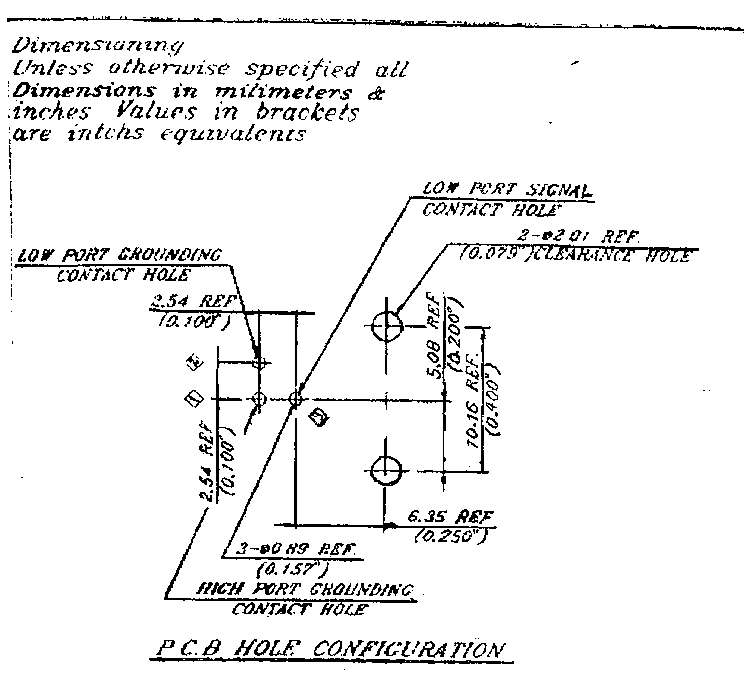 Dimensianing
Unless otherwise specified all
Dimensions in milimeters &
inches Values in brackets
are intchs equivalents
LOW PORT SIGNAL
CONTACT HOLE
2-ø2.01 REF.
(0.079")CLEARANCE HOLE
LOW PORT GROUNDING
CONTACT HOLE
2.54 REF
(0.100")
5.08 REF
(0.200")
10.16 REF.
(0.400")
2.54 REF
(0.100")
6.35 REF
(0.250")
3-ø0.89 REF.
(0.157")
HIGH PORT GROUNDING
CONTACT HOLE
P.C.B HOLE CONFIGURATION